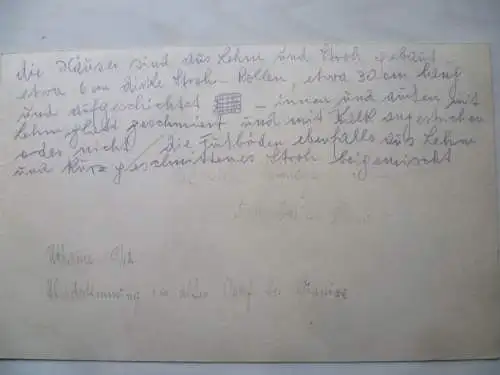 die Häuser sind aus Lehm und Stroh gebaut
etwa 6 cm dicke Stroh-Rollen, etwa 30 cm lang
und aufgeschichtet – innen und außen mit
Lehm glatt geschmiert und mit Kalk angestrichen
oder nicht / die Fußböden ebenfalls aus Lehm
und kurz geschnittenes Stroh beigemischt
Ukraine
Abendstimmung im alten Dorf bei